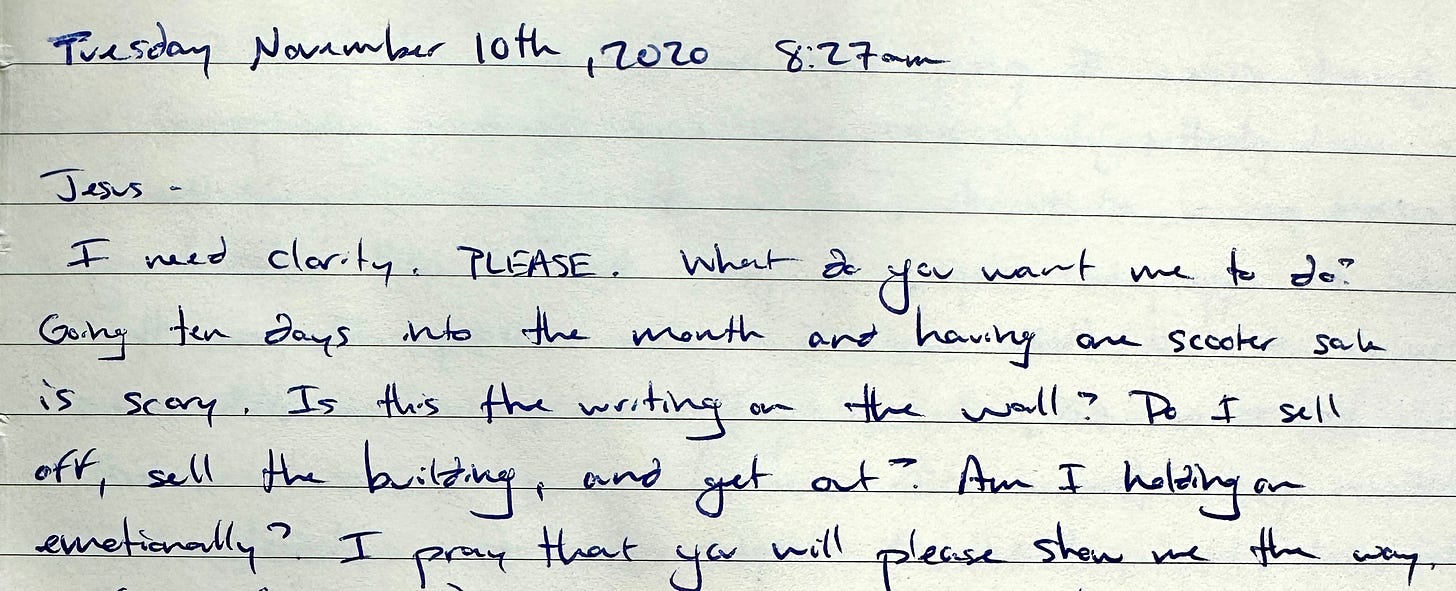 Tuesday November 10th, 2020 8:27am
Jesus -
I need clarity. PLEASE. What do you want me to do?
Going ten days into the month and having one scooter sale
is scary. Is this the writing on the wall? Do I sell
off, sell the building, and get out? Am I holding on
emotionally? I pray that you will please show me the way.